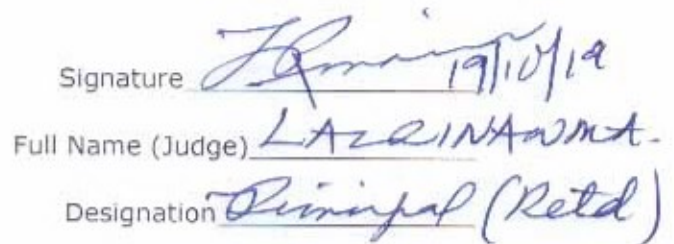 Signature 19/10/19
Full Name (Judge) LALRINAWMA.
Designation Principal (Retd)